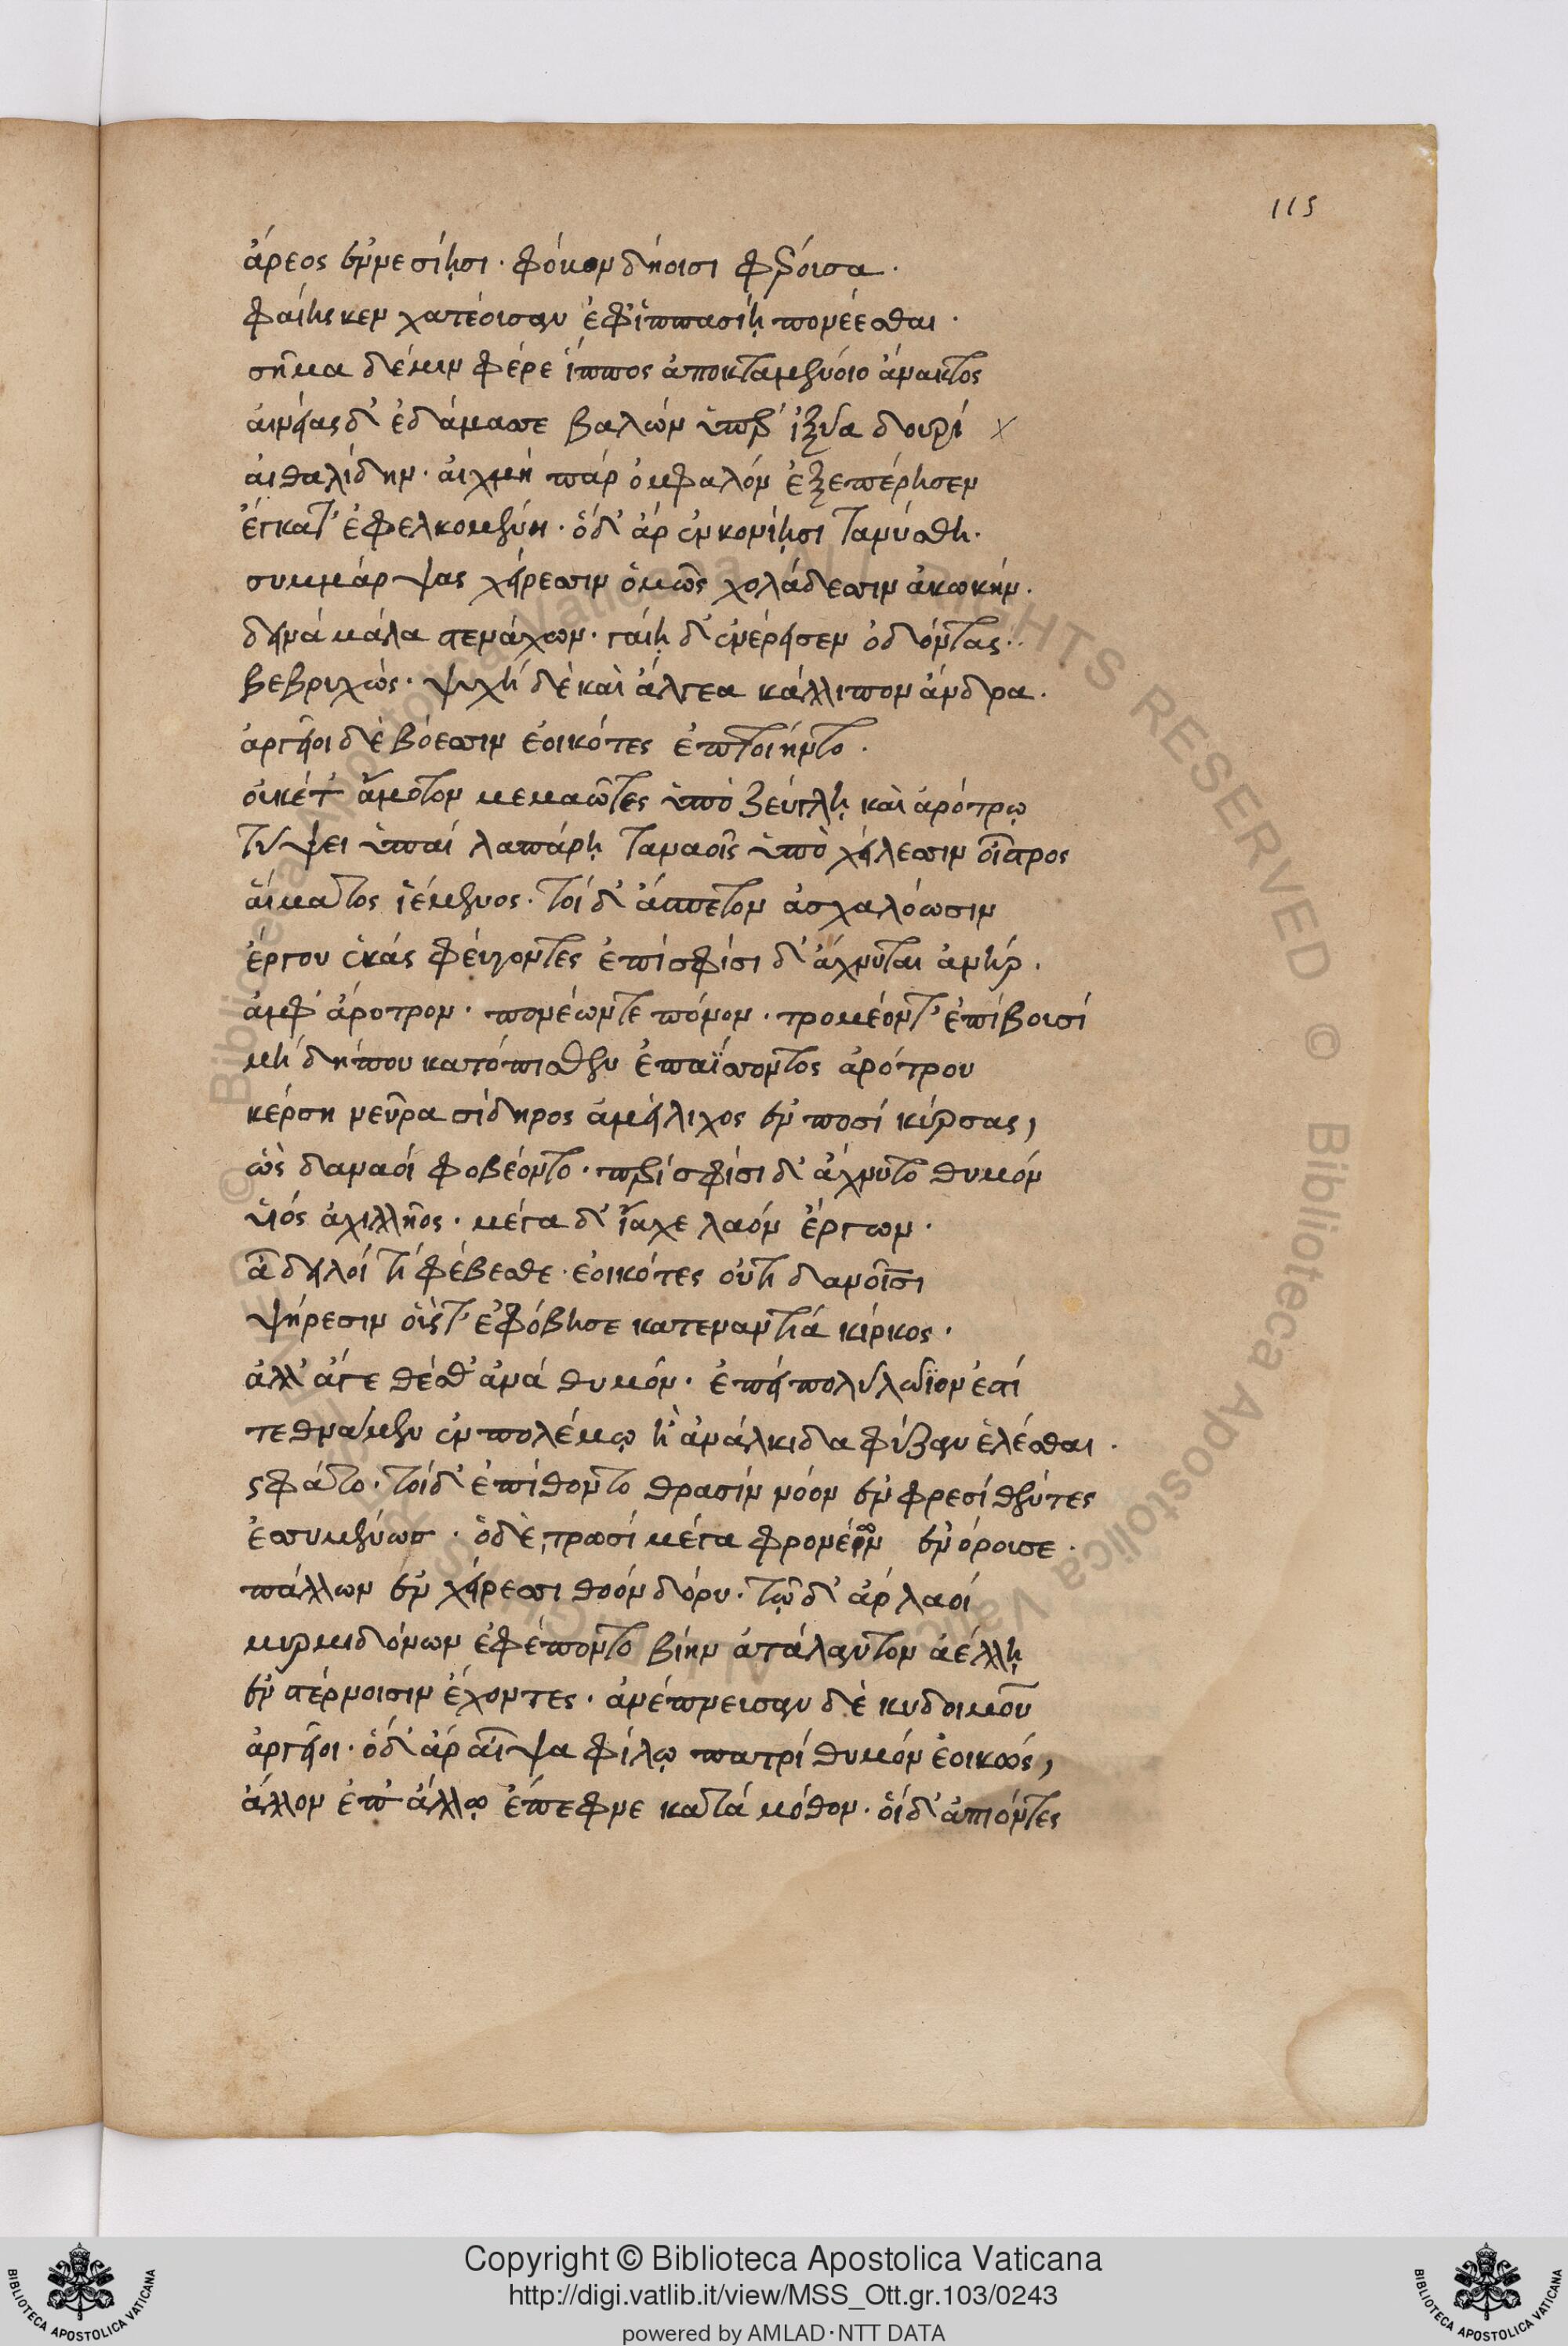 115
ἄρεος ἐννεσίῃσι· φόνον δηίοισι φέροισα.
φαίης κεν χατέοισαν ἐφ' ἱππασίῃ πονέεσθαι.
σῆμα δέ μιν φέρε ἵππος ἀποκταμένοιο ἄνακτος
αἰνείας δ' ἐδάμασσε βαλὼν ὑπὲρ ἰξύα δουρί ×
αἰθαλίδην· αἰχμὴ παρ ὀμφαλὸν ἐξεπέρησεν
ἔγκατ' ἐφελκομένη· ὁ δ' ἄρ ἐν κονίῃσι τανύσθη.
συμμάρψας χείρεσσιν ὁμῶς χολάδεσσιν ἀκωκήν.
δεινὰ μάλα στενάχων· γαίῃ δ' ἐνέρεισεν ὀδόντας.
βεβρυχώς· ψυχὴ δὲ καὶ ἄλγεα κάλλιπον ἄνδρα.
ἀργεῖοι δὲ βόεσσιν ἐοικότες ἐπτοίηντο.
οὐκέτ' ἄμοτον μεμαῶτες ὑπὸ ζεύγλῃ καὶ ἀρότρῳ
τύψει ὑπαὶ λαπάρῃ ταναοῖς ὑπὸ χείλεσσιν οἶστρος
αἵματος ἱέμενος· τοὶ δ' ἄσπετον ἀσχαλόωσιν
ἔργου ἑκὰς φεύγοντες ἐπὶ σφίσι δ' ἄχνυται ἀνήρ.
ἀμφ' ἄροτρον· πονέων τε πόνον· τρομέοντ' ἐπὶ βουσί
μὴ δή που κατόπισθεν ἐπαΐσσοντος ἀρότρου
κέρσῃ νεῦρα σίδηρος ἀμείλιχος ἐν ποσὶ κύρσας,
ὣς δαναοὶ φοβέοντο· περὶ σφίσι δ' ἄχνυτο θυμὸν
υἱὸς ἀχιλλῆος· μέγα δ' ἴαχε λαὸν ἔργων.
ἆ δειλοὶ τί φέβεσθε· ἐοικότες οὔτι δανοῖσι
ψήρεσιν οὓς τ' ἐφόβησε κατεναντία κίρκος.
ἀλλ' ἄγε θέσθ' ἀνὰ θυμόν· ἐπεὶ πολὺ λώϊον ἐστί
τεθνάμεν ἐν πολέμῳ ἢ ἀνάλκιδα φύζαν ἑλέσθαι.
ς φάτο· τοὶ δ' ἐπίθοντο θρασὺν νόον ἐν φρεσὶ θέντες
ἐσσυμένως· ὁ δὲ τρωσὶ μέγα φρονέων ἐνόρουσε.
πάλλων ἐν χείρεσσι θοὸν δόρυ· τῷ δ' ἄρ λαοὶ
μυρμιδόνων ἐφέποντο βίην ἀτάλαντον ἀέλλῃ
ἐν στέρνοισιν ἔχοντες· ἀνέπνευσαν δὲ κυδοιμοῦ
ἀργεῖοι· ὁ δ' ἄρ αἶψα φίλῳ πατρὶ θυμὸν ἐοικώς,
ἄλλον ἐπ' ἄλλῳ ἔπεφνε κατὰ μόθον· οἱ δ' ἀπιόντες
Copyright © Biblioteca Apostolica Vaticana
http://digi.vatlib.it/view/MSS_Ott.gr.103/0243
powered by AMLAD·NTT DATA